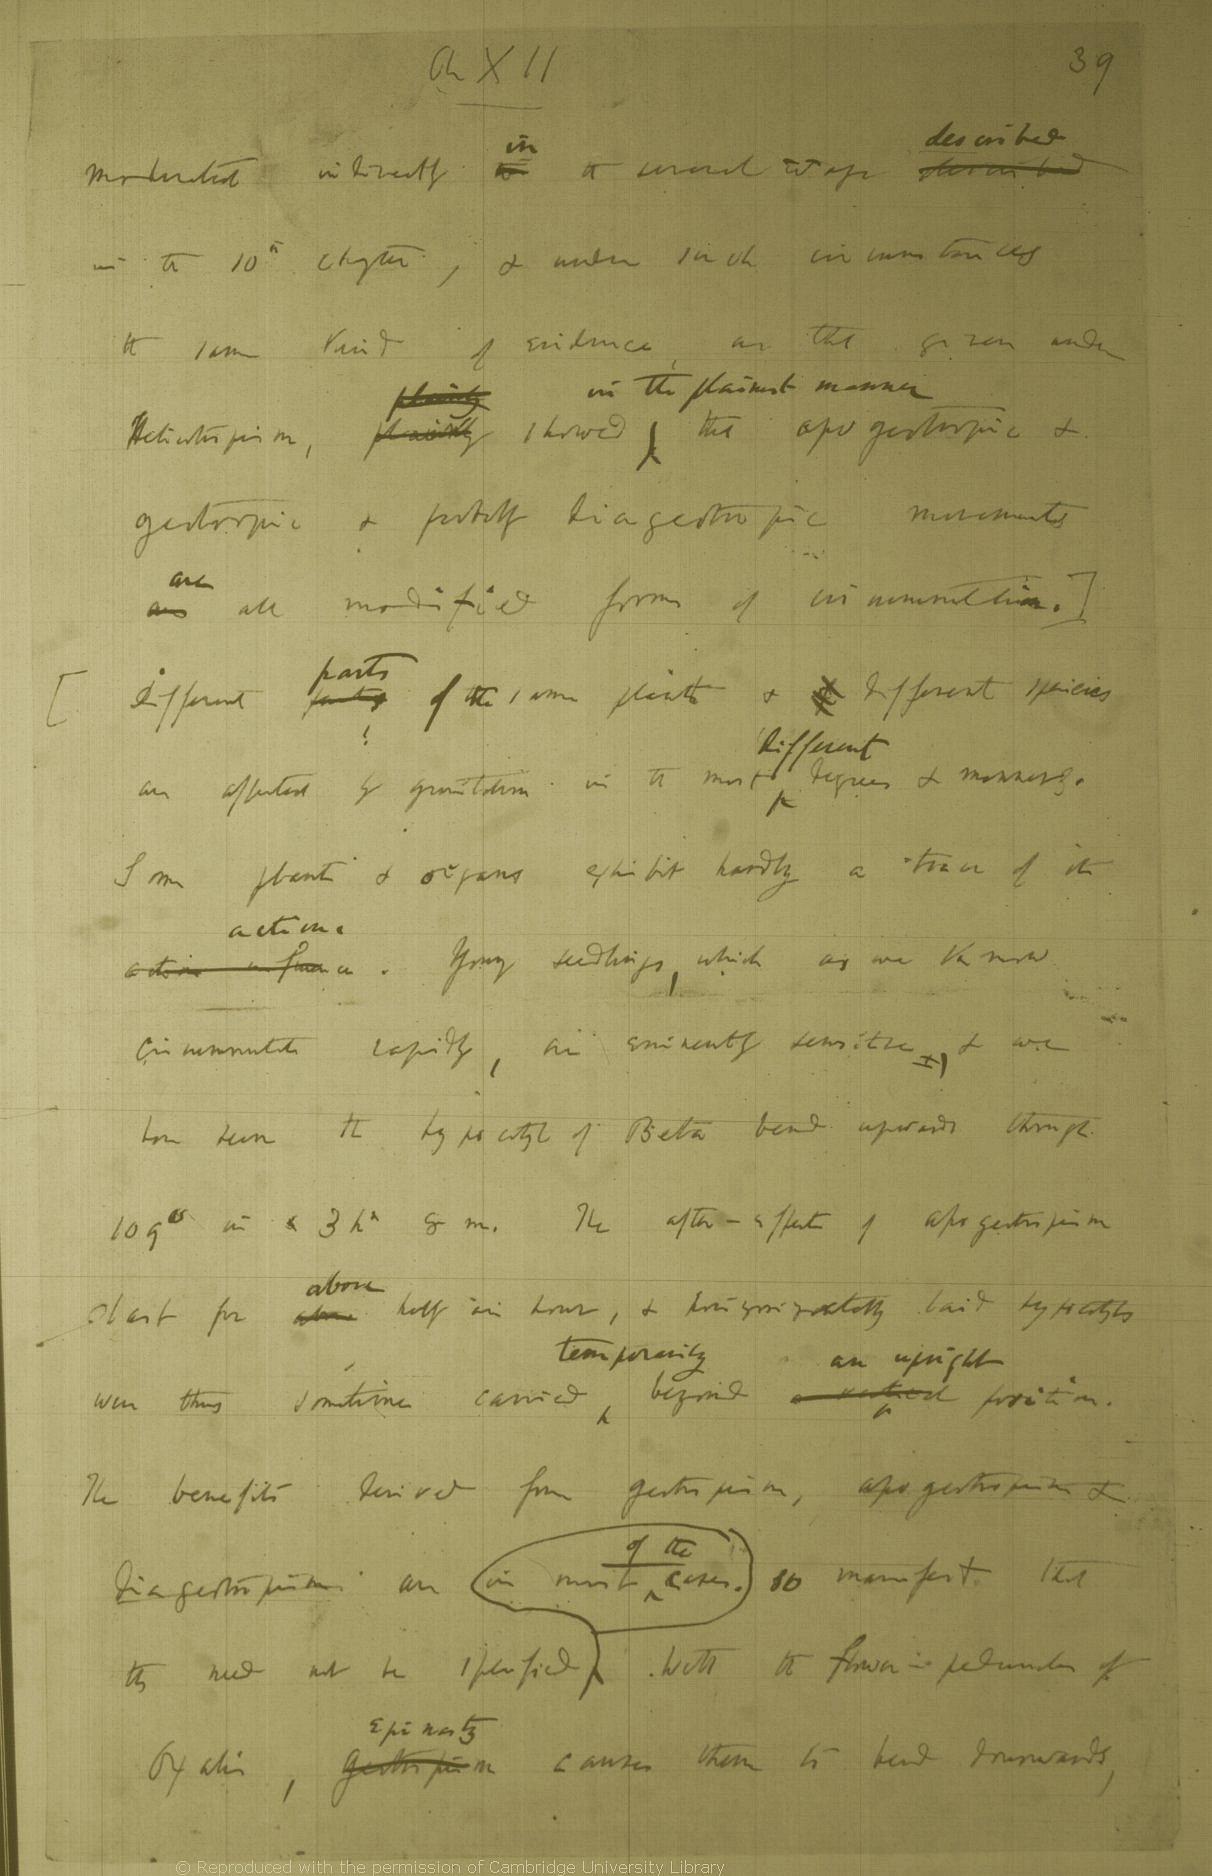 Ch XII 39
in described
moderated indirectly to the several ways described
in the 10th chapter, & under such circumstances
the same kind of evidence, as that given under
plainly in the plainest manner
Heliotropism, plainly showed, that apogeotropic &
geotropic & probably diageotropic movements
are
are all modified forms of circumnutation.]
parts
[Different parts of the same plant & different species
different
are affected by gravitation in the most degrees & manners.
Some plants & organs exhibit hardly a trace of its
action.
action influence. Young seedlings, which as we know
circumnutate rapidly, are eminently sensitive, & we
have seen the hypocotyl of Beta bend upwards through
109° in 3 h 8 m. The after-effects of apogeotropism
above
last for above half an hour, & horizontally laid hypocotyls
temporarily an upright
were thus sometimes carried beyond a vertical position.
The benefits derived from geotropism, apogeotropism &
of the
diageotropism are in most cases. so manifest that
they need not be specified. With the flower-peduncles of
epinasty
Oxalis, geotropism causes them to bend downwards,
© Reproduced with the permission of Cambridge University Library